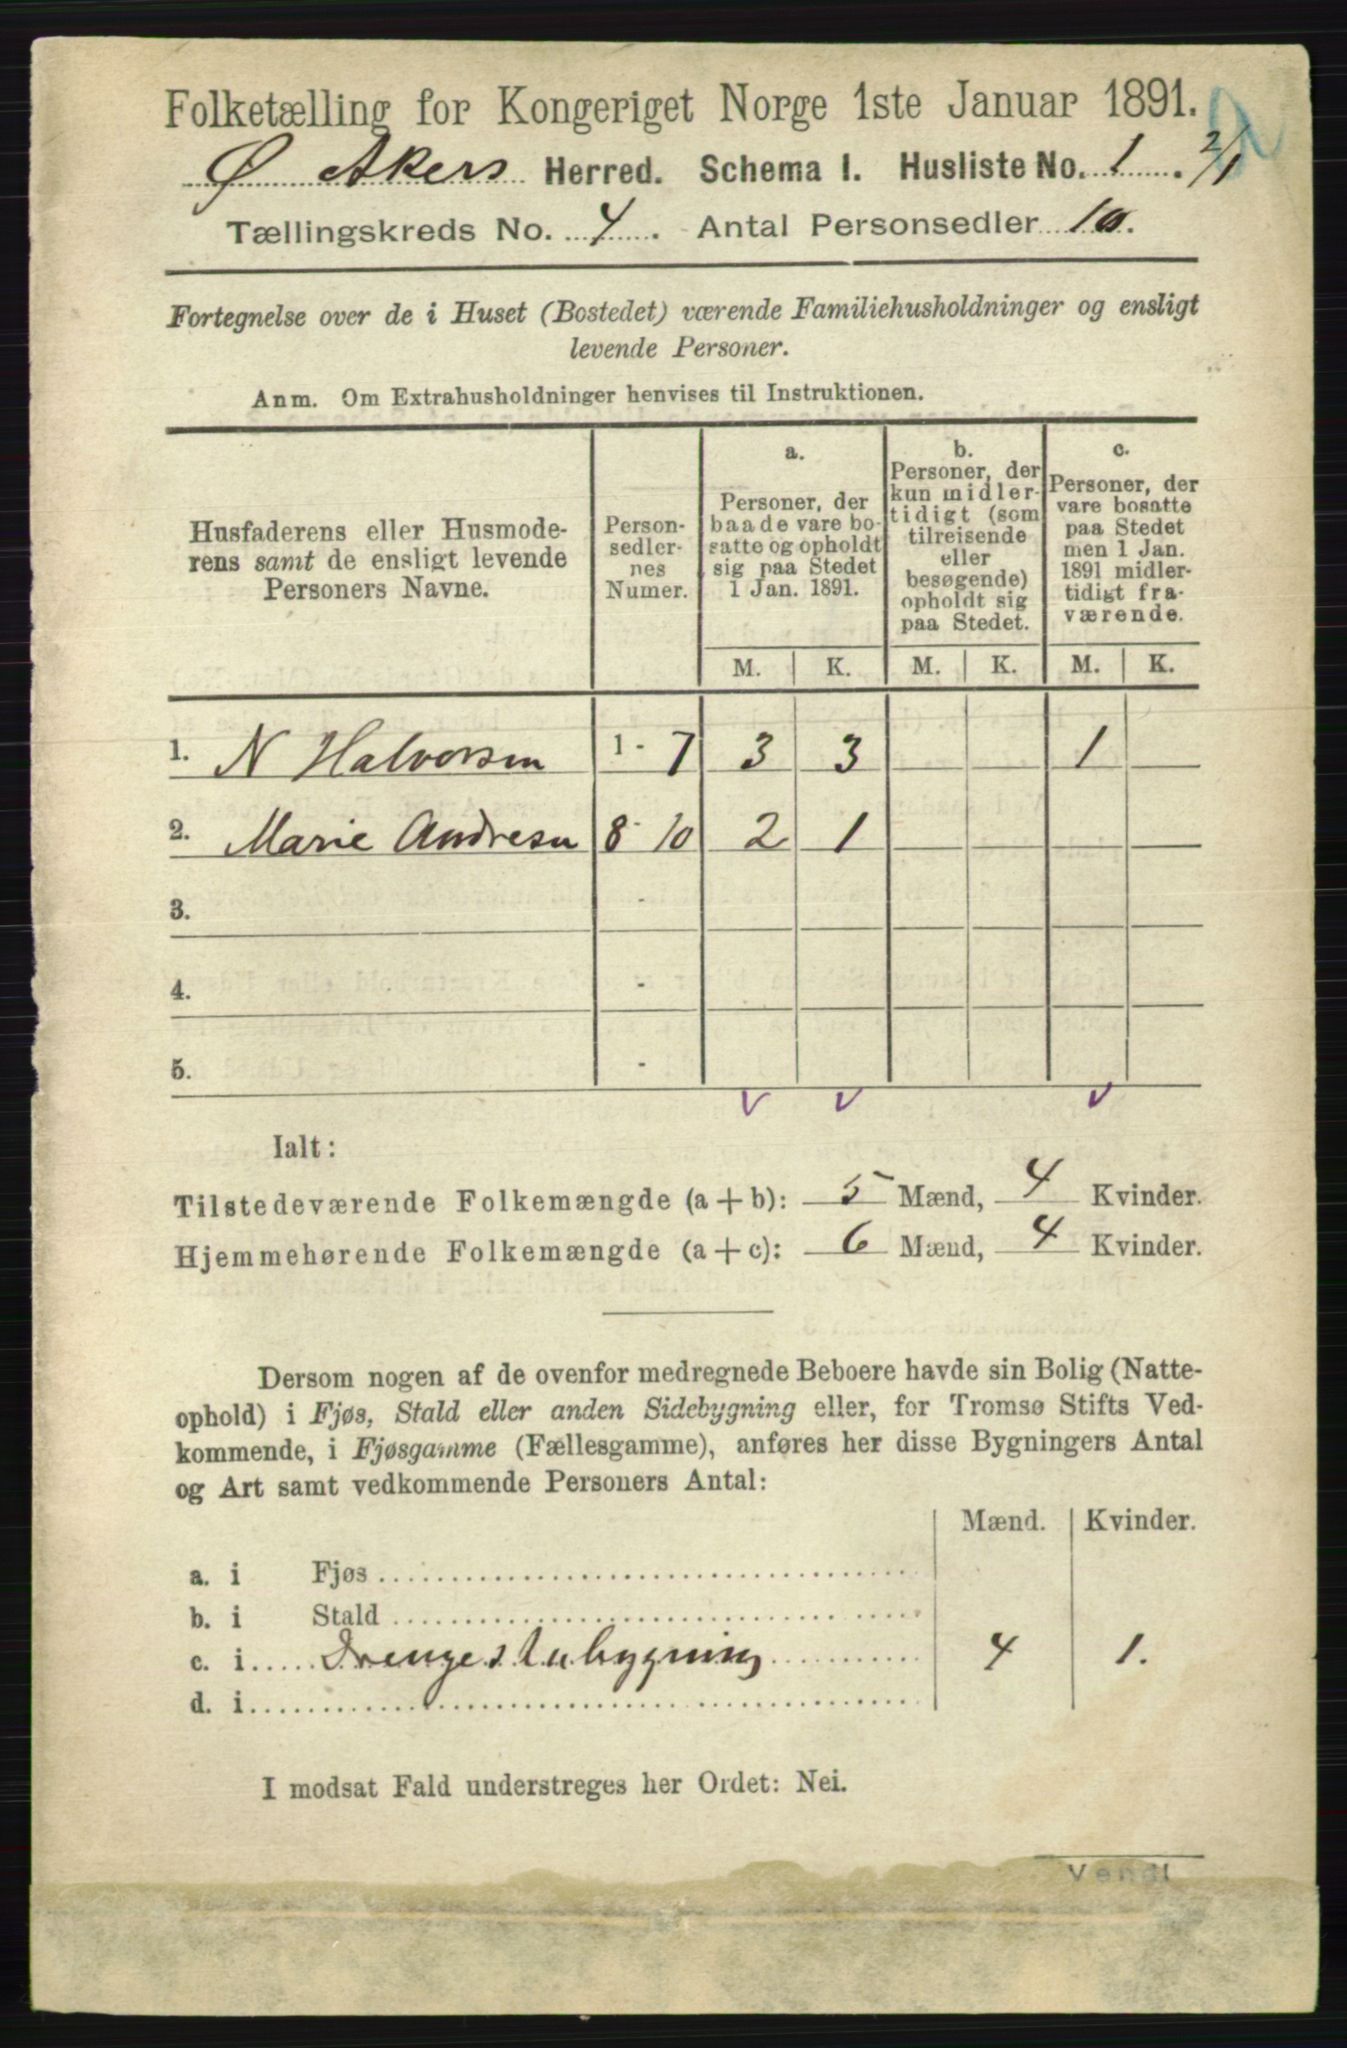 Folketælling for Kongeriget Norge 1ste Januar 1891.
Ø Akers Herred. Schema I. Husliste No. 1. 2/1
Tællingskreds No. 4. Antal Personsedler 10.
Fortegnelse over de i Huset (Bostedet) værende Familiehusholdninger og ensligt
levende Personer.
Anm. Om Extrahusholdninger henvises til Instruktionen.
Husfaderens eller Husmode-
rens samt de ensligt levende
Personers Navne.
Person-
sedler-
nes
Numer.
a.
Personer, der
baade vare bo-
satte og opholdt
sig paa Stedet
1 Jan. 1891.
b.
Personer, der
kun midler-
tidigt (som
tilreisende
eller
besøgende)
opholdt sig
paa Stedet.
c.
Personer, der
vare bosatte
paa Stedet
men 1 Jan.
1891 midler-
tidigt fra-
værende.
M. K. M. K. M. K.
1. N Halvorsen 1 - 7 3 3 1
2. Marie Andresen 8 - 10 2 1
3. -
4. -
5. -
Ialt:
Tilstedeværende Folkemængde (a + b): 5 Mænd, 4 Kvinder.
Hjemmehørende Folkemængde (a + c): 6 Mænd, 4 Kvinder.
Dersom nogen af de ovenfor medregnede Beboere havde sin Bolig (Natte-
ophold) i Fjøs, Stald eller anden Sidebygning eller, for Tromsø Stifts Ved-
kommende, i Fjøsgamme (Fællesgamme), anføres her disse Bygningers Antal
og Art samt vedkommende Personers Antal:
Mænd. Kvinder.
a. i Fjøs
b. i Stald
c. i Drengestubygning 4 1.
d. i
I modsat Fald understreges her Ordet: Nei.
Vend!